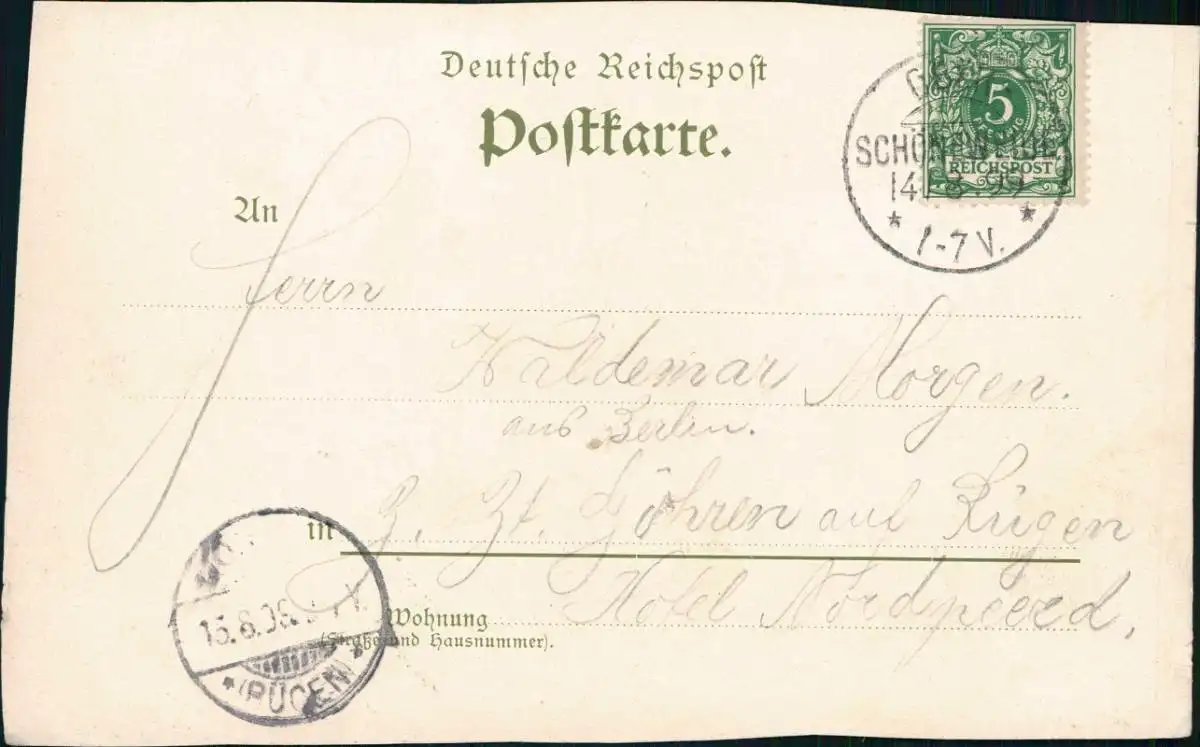 Deutsche Reichspost
Postkarte.
5
PFENNIG
REICHSPOST
SCHÖNEWEIDE
14. 8. 99
* 1-7 V. *
An
Herrn
Waldemar Morgen.
aus Berlin.
in Z. Zt. Göhren auf Rügen
Hotel Nordpeerd.
Wohnung
(Straße und Hausnummer).
*(RÜGEN)*